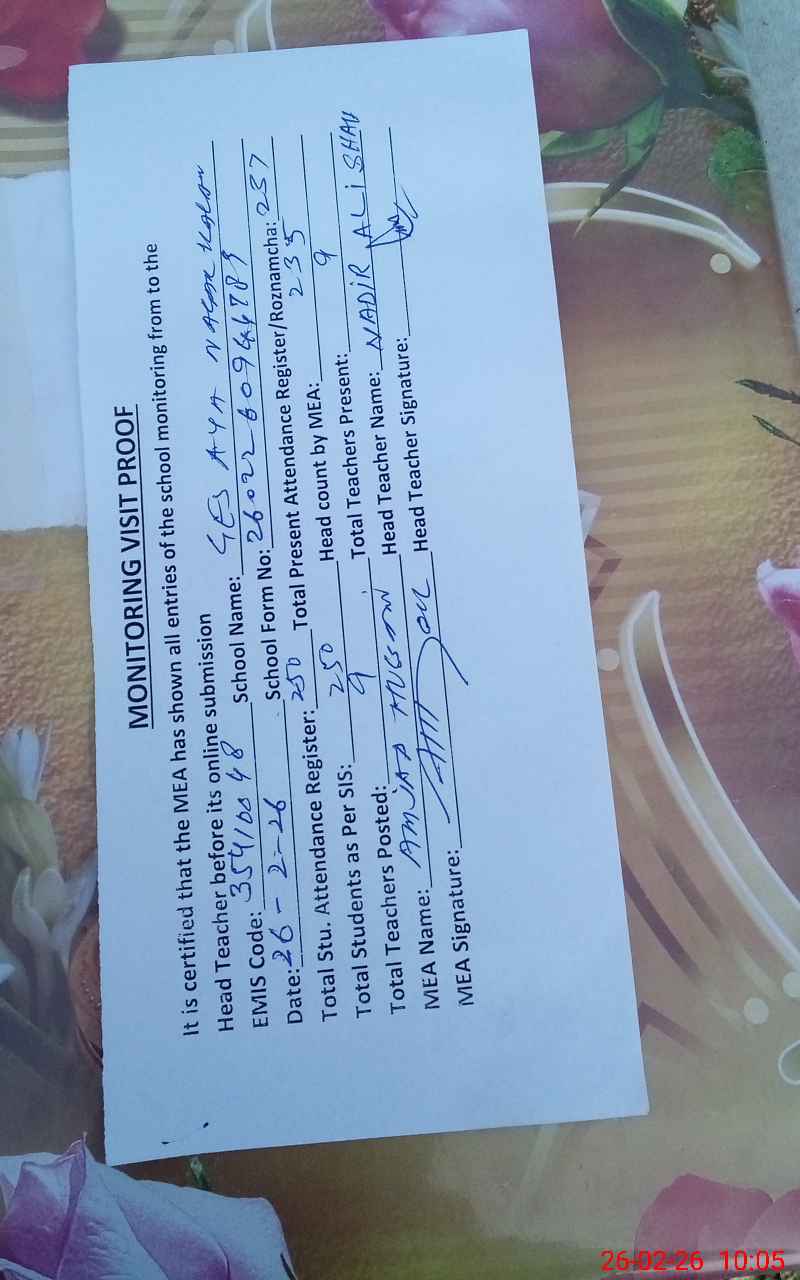 MONITORING VISIT PROOF
It is certified that the MEA has shown all entries of the school monitoring from to the
Head Teacher before its online submission
EMIS Code: 35410048 School Name: GES AYA NAGAR KALAN
Date: 26-2-26 School Form No:
Total Stu. Attendance Register: 250 Total Present Attendance Register/Roznamcha: 237
Total Students as Per SIS: 250 Head count by MEA: 235
Total Teachers Posted: 9 Total Teachers Present: 9
MEA Name: AMJAD HUSSAIN Head Teacher Name: NADIR ALI SHAH
MEA Signature: Head Teacher Signature:
26-02-26 10:05